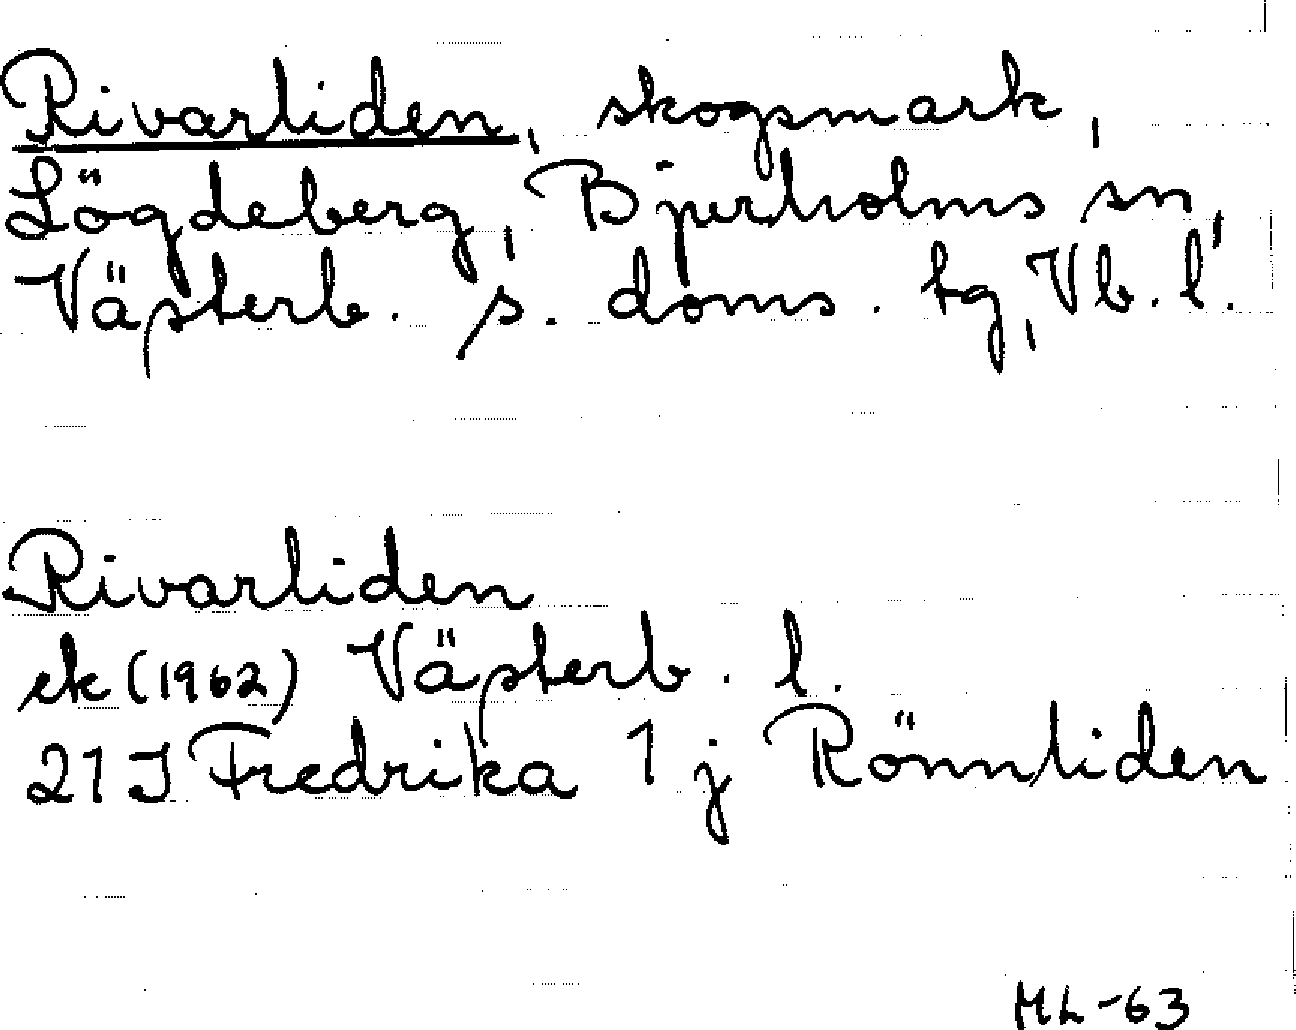 Rivarliden, skogsmark,
Lögdeberg, Bjurholms sn,
Västerb. s. doms. tg, Vb. l.
Rivarliden
ek (1962) Västerb. l.
21 J Fredrika 1 j Rönnliden
ML-63